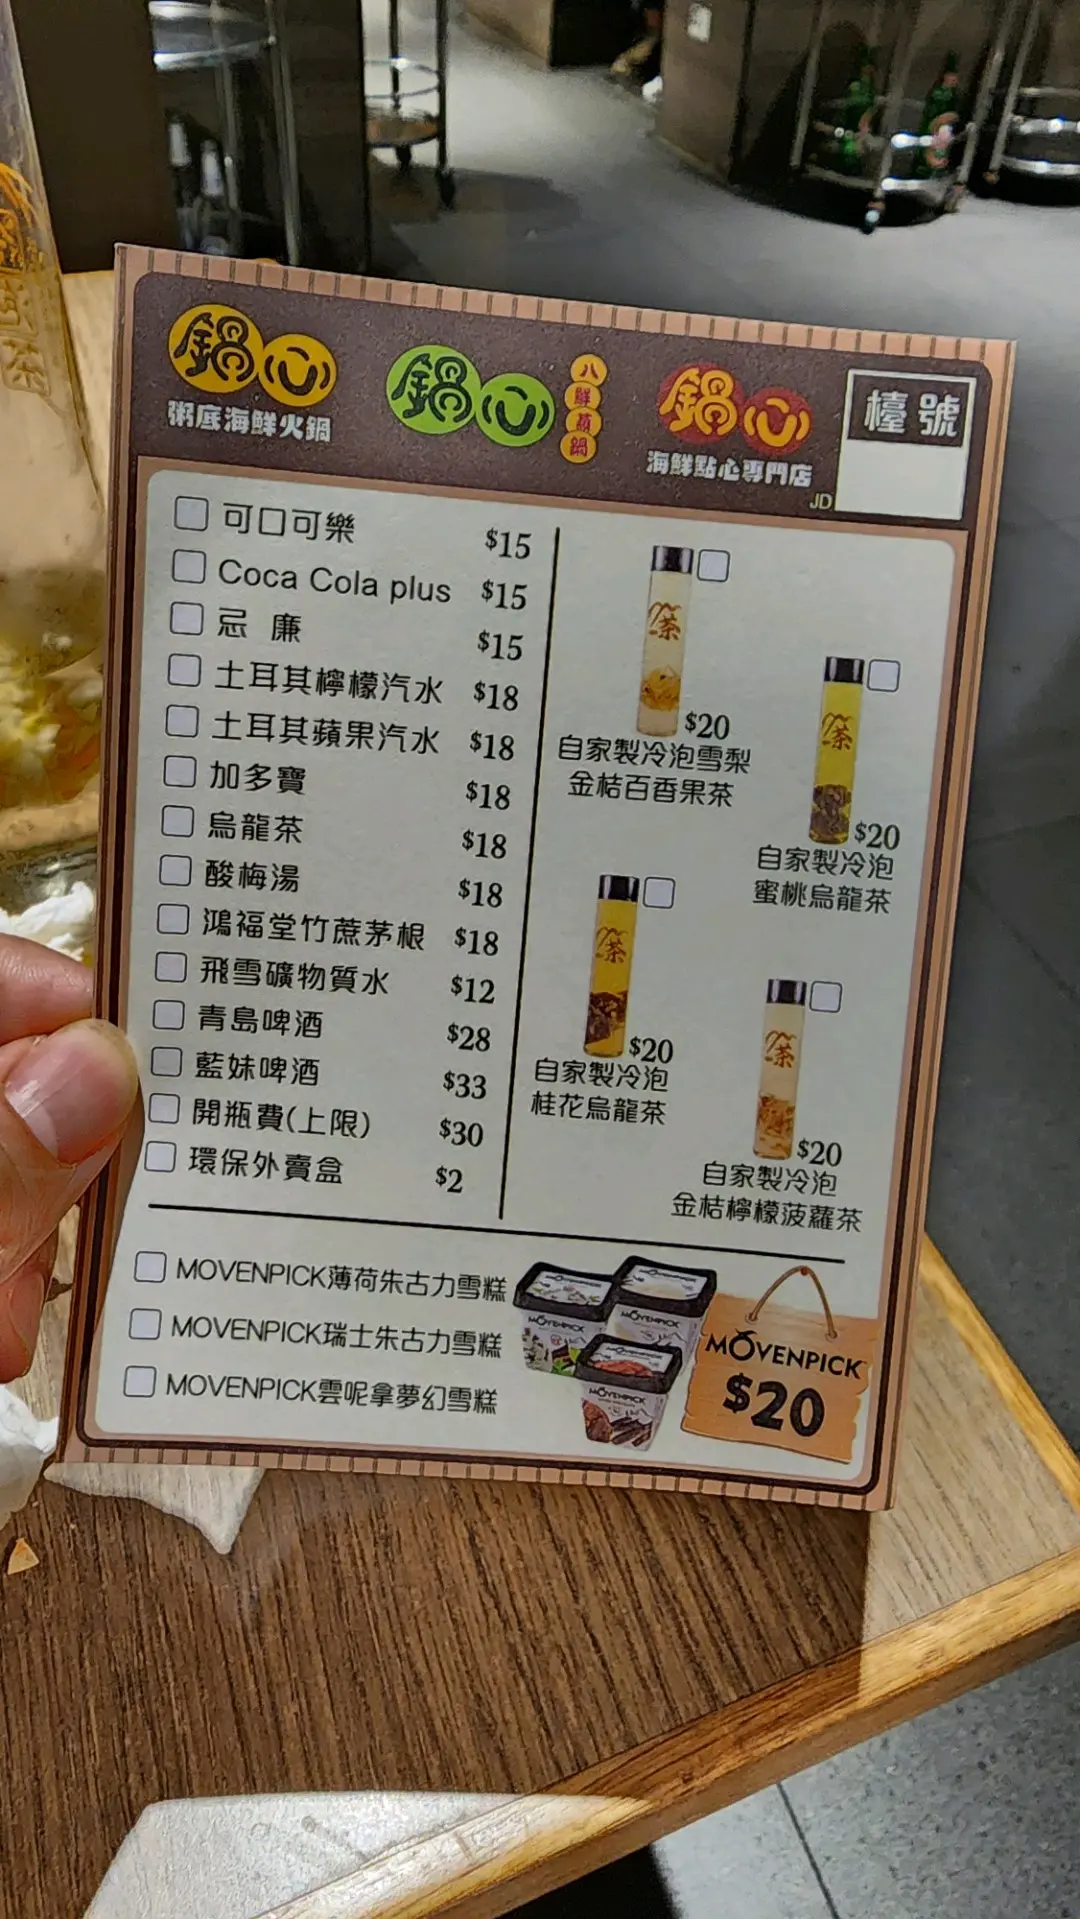 鍋心
粥底海鮮火鍋
鍋心
八鮮蒸鍋
鍋心
海鮮點心專門店
檯號
JD
可口可樂 $15
Coca Cola plus $15
忌廉 $15
土耳其檸檬汽水 $18
土耳其蘋果汽水 $18
加多寶 $18
烏龍茶 $18
酸梅湯 $18
鴻福堂竹蔗茅根 $18
飛雪礦物質水 $12
青島啤酒 $28
藍妹啤酒 $33
開瓶費(上限) $30
環保外賣盒 $2
茶
$20
自家製冷泡雪梨
金桔百香果茶
茶
$20
自家製冷泡
蜜桃烏龍茶
茶
$20
自家製冷泡
桂花烏龍茶
茶
$20
自家製冷泡
金桔檸檬菠蘿茶
MOVENPICK薄荷朱古力雪糕
MOVENPICK瑞士朱古力雪糕
MOVENPICK雲呢拿夢幻雪糕
MÖVENPICK
MÖVENPICK
MÖVENPICK
MÖVENPICK
$20